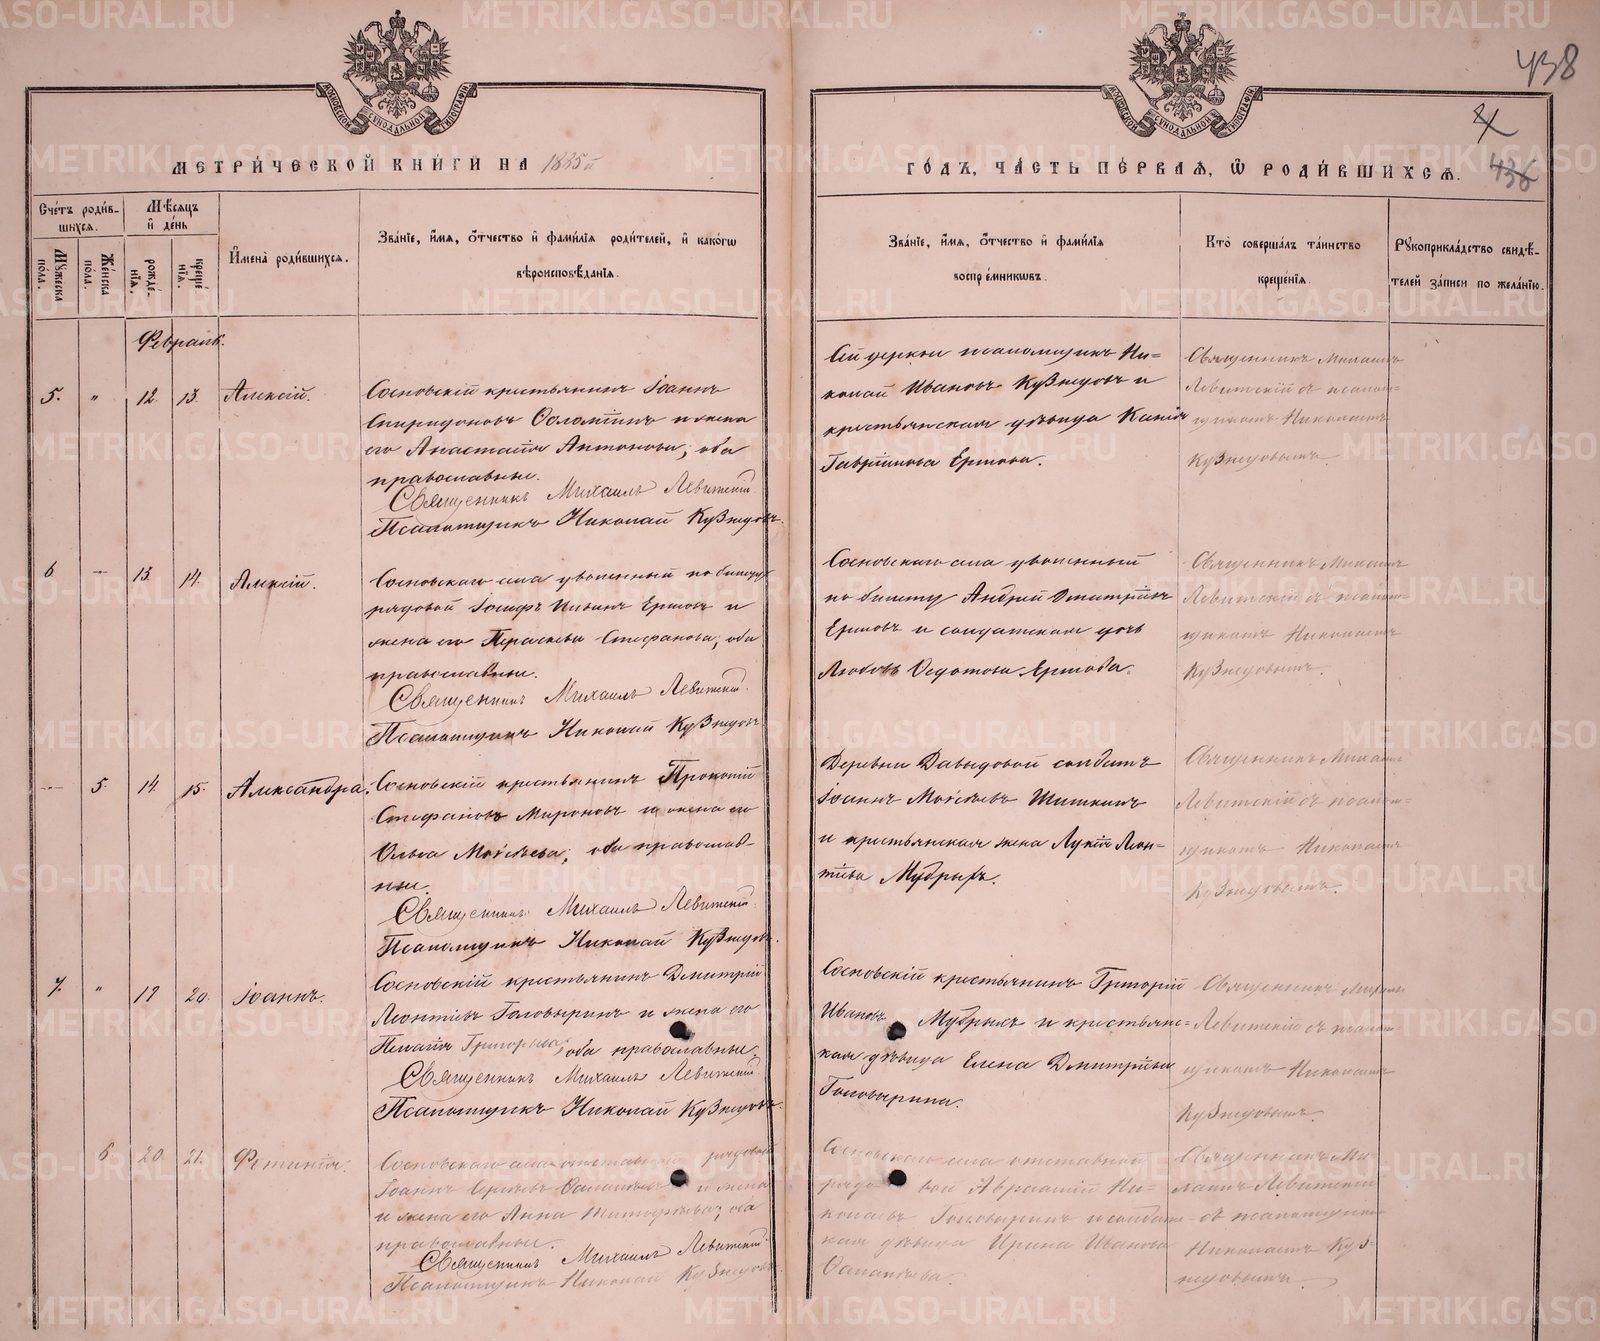 438
МОСКОВСКОЙ СѴНОДАЛЬНОЙ ТИПОГРАФІИ
МОСКОВСКОЙ СѴНОДАЛЬНОЙ ТИПОГРАФІИ
МЕТРИ́ЧЕСКОЙ КНИ́ГИ НА 1885й
ГО́ДЪ, ЧА́СТЬ ПЕ́РВАЯ, Ѡ РОДИ́ВШИХСѦ. 436
Сче́тъ роди́в-
шихся.
Мѣсяцъ
и҆ де́нь
Му́жеска по́ла.
Же́нска по́ла.
рожде́-
нїя.
креще́-
нїя.
И҆мена̀ роди́вшихся.
Зва́нїе, и҆́мя, ѻ҆́тчество и҆ фами́лїя роди́телей, и҆ како́гѡ
вѣроисповѣ́данїя.
Зва́нїе, и҆́мя, ѻ҆́тчество и҆ фами́лїя
воспрїе́мникѡвъ.
Кто̀ соверша́лъ та́инство
креще́нїя.
Рꙋкоприкла́дство свидѣ́-
телей за́писи по жела́нїю.
Февраль.
5. " 12. 13. Алексій.
Сосновскій крестьянинъ Іоаннъ
Спиридоновъ и жена
его Анастасія Антонова; оба
православные.
Священникъ Михаилъ Левитскій.
Псаломщикъ Николай Кузнецовъ.
Сей церкви псаломщикъ Ни-
колай Ивановъ Кузнецовъ и
крестьянская дѣвица
Гавріилова Ершова.
Священникъ Михаилъ
Левитскій съ псалом-
щикомъ Николаемъ
Кузнецовымъ.
6 — 13. 14. Алексій.
Сосновскаго села уволенный по билету
рядовой Іосифъ Ершовъ и
жена его Параскева Стефанова; оба
православные.
Священникъ Михаилъ Левитскій.
Псаломщикъ Николай Кузнецовъ
Сосновскаго села уволенный
по билету Андрей Дмитріевъ
Ершовъ и солдатская дочь
Любовь Ѳедотова Ершова.
Священникъ Михаилъ
Левитскій съ псалом-
щикомъ Николаемъ
Кузнецовымъ.
— 5. 14. 15. Александра.
Сосновскій крестьянинъ Прокопій
Стефановъ Мироновъ и жена его
Ольга Моѵсеева; оба православ-
ные.
Священникъ Михаилъ Левитскій.
Псаломщикъ Николай Кузнецовъ.
Деревни Давыдовой солдатъ
Іоаннъ Моѵсеевъ Шишкинъ
и крестьянская жена Лукія Леон-
тіева Мудрыхъ.
Священникъ Михаилъ
Левитскій съ псалом-
щикомъ Николаемъ
Кузнецовымъ.
7. " 19 20. Іоаннъ.
Сосновскій крестьянинъ Дмитрій
Леонтіевъ Головыринъ и жена его
Пелагія Григорьева; оба православные.
Священникъ Михаилъ Левитскій.
Псаломщикъ Николай Кузнецовъ.
Сосновскій крестьянинъ Григорій
Ивановъ Мудрыхъ и крестьянс-
кая дѣвица Елена Дмитріева
Головырина.
Священникъ Михаилъ
Левитскій съ псалом-
щикомъ Николаемъ
Кузнецовымъ.
6. 20. 21. Фотинія.
Сосновскаго села отставной рядовой
Іоаннъ Сергѣевъ и жена
и жена его Анна Тимофѣева; оба
православные.
Священникъ Михаилъ Левитскій.
Псаломщикъ Николай Кузнецовъ.
Сосновскаго села отставной
рядовой Авраамій Ни-
колаевъ Головыринъ и солдатс-
кая дѣвица Ирина Иванова
Священникъ Ми-
хаилъ Левитскій
съ псаломщикомъ
Николаемъ Куз-
нецовымъ.
METRIKI.GASO-URAL.RU